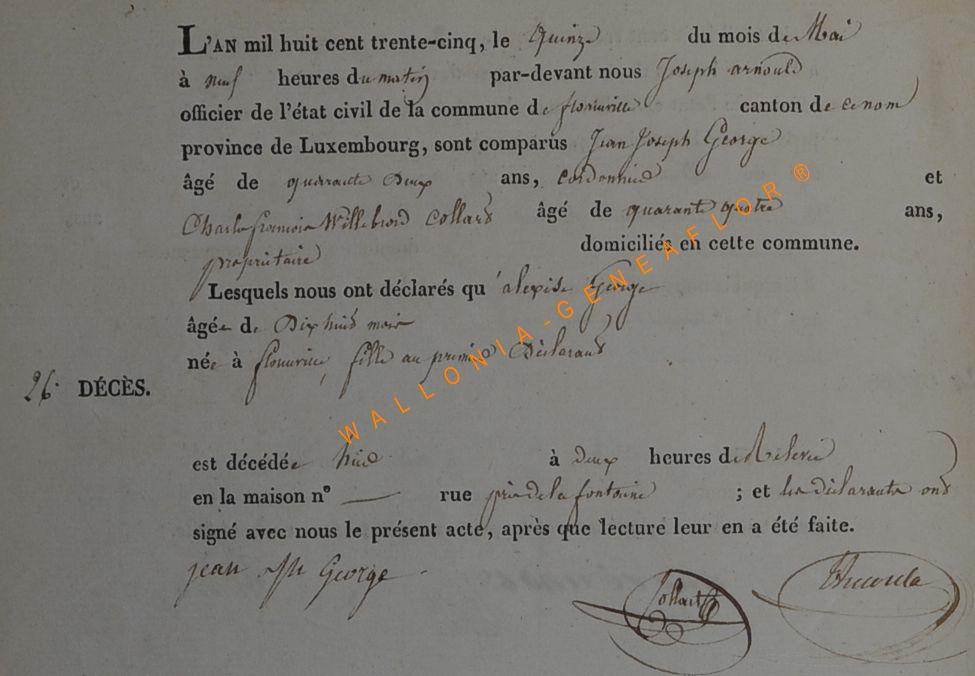 L'AN mil huit cent trente-cinq, le quinze du mois de Mai
à neuf heures du matin par-devant nous Joseph arnould
officier de l'état civil de la commune de florenville canton de ce nom
province de Luxembourg, sont comparus Jean Joseph George
âgé de quarante deux ans, cordonnier et
Charles françois Willebrord Collard âgé de quarante quatre ans,
propriétaire domiciliés en cette commune.
Lesquels nous ont déclarés qu'alexise George
âgée de Dix huit mois
née à florenville, fille au premier Déclarant
26. DÉCÈS.
est décédée hier à deux heures de Relevée
en la maison n° — rue près de la fontaine ; et les déclarants ont
signé avec nous le présent acte, après que lecture leur en a été faite.
jean jph George
Collard
WALLONIA-GENEAFLOR ®